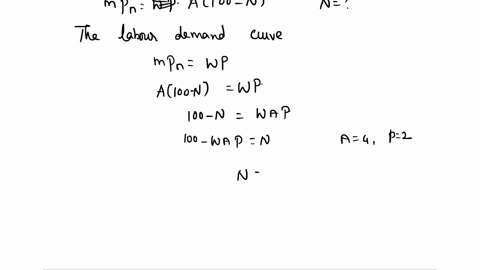 mPn = A(100-N) N=?
The labour demand curve
mPn = WP
A(100-N) = WP
100-N = WAP
100-WAP = N A=4, P=2
N =